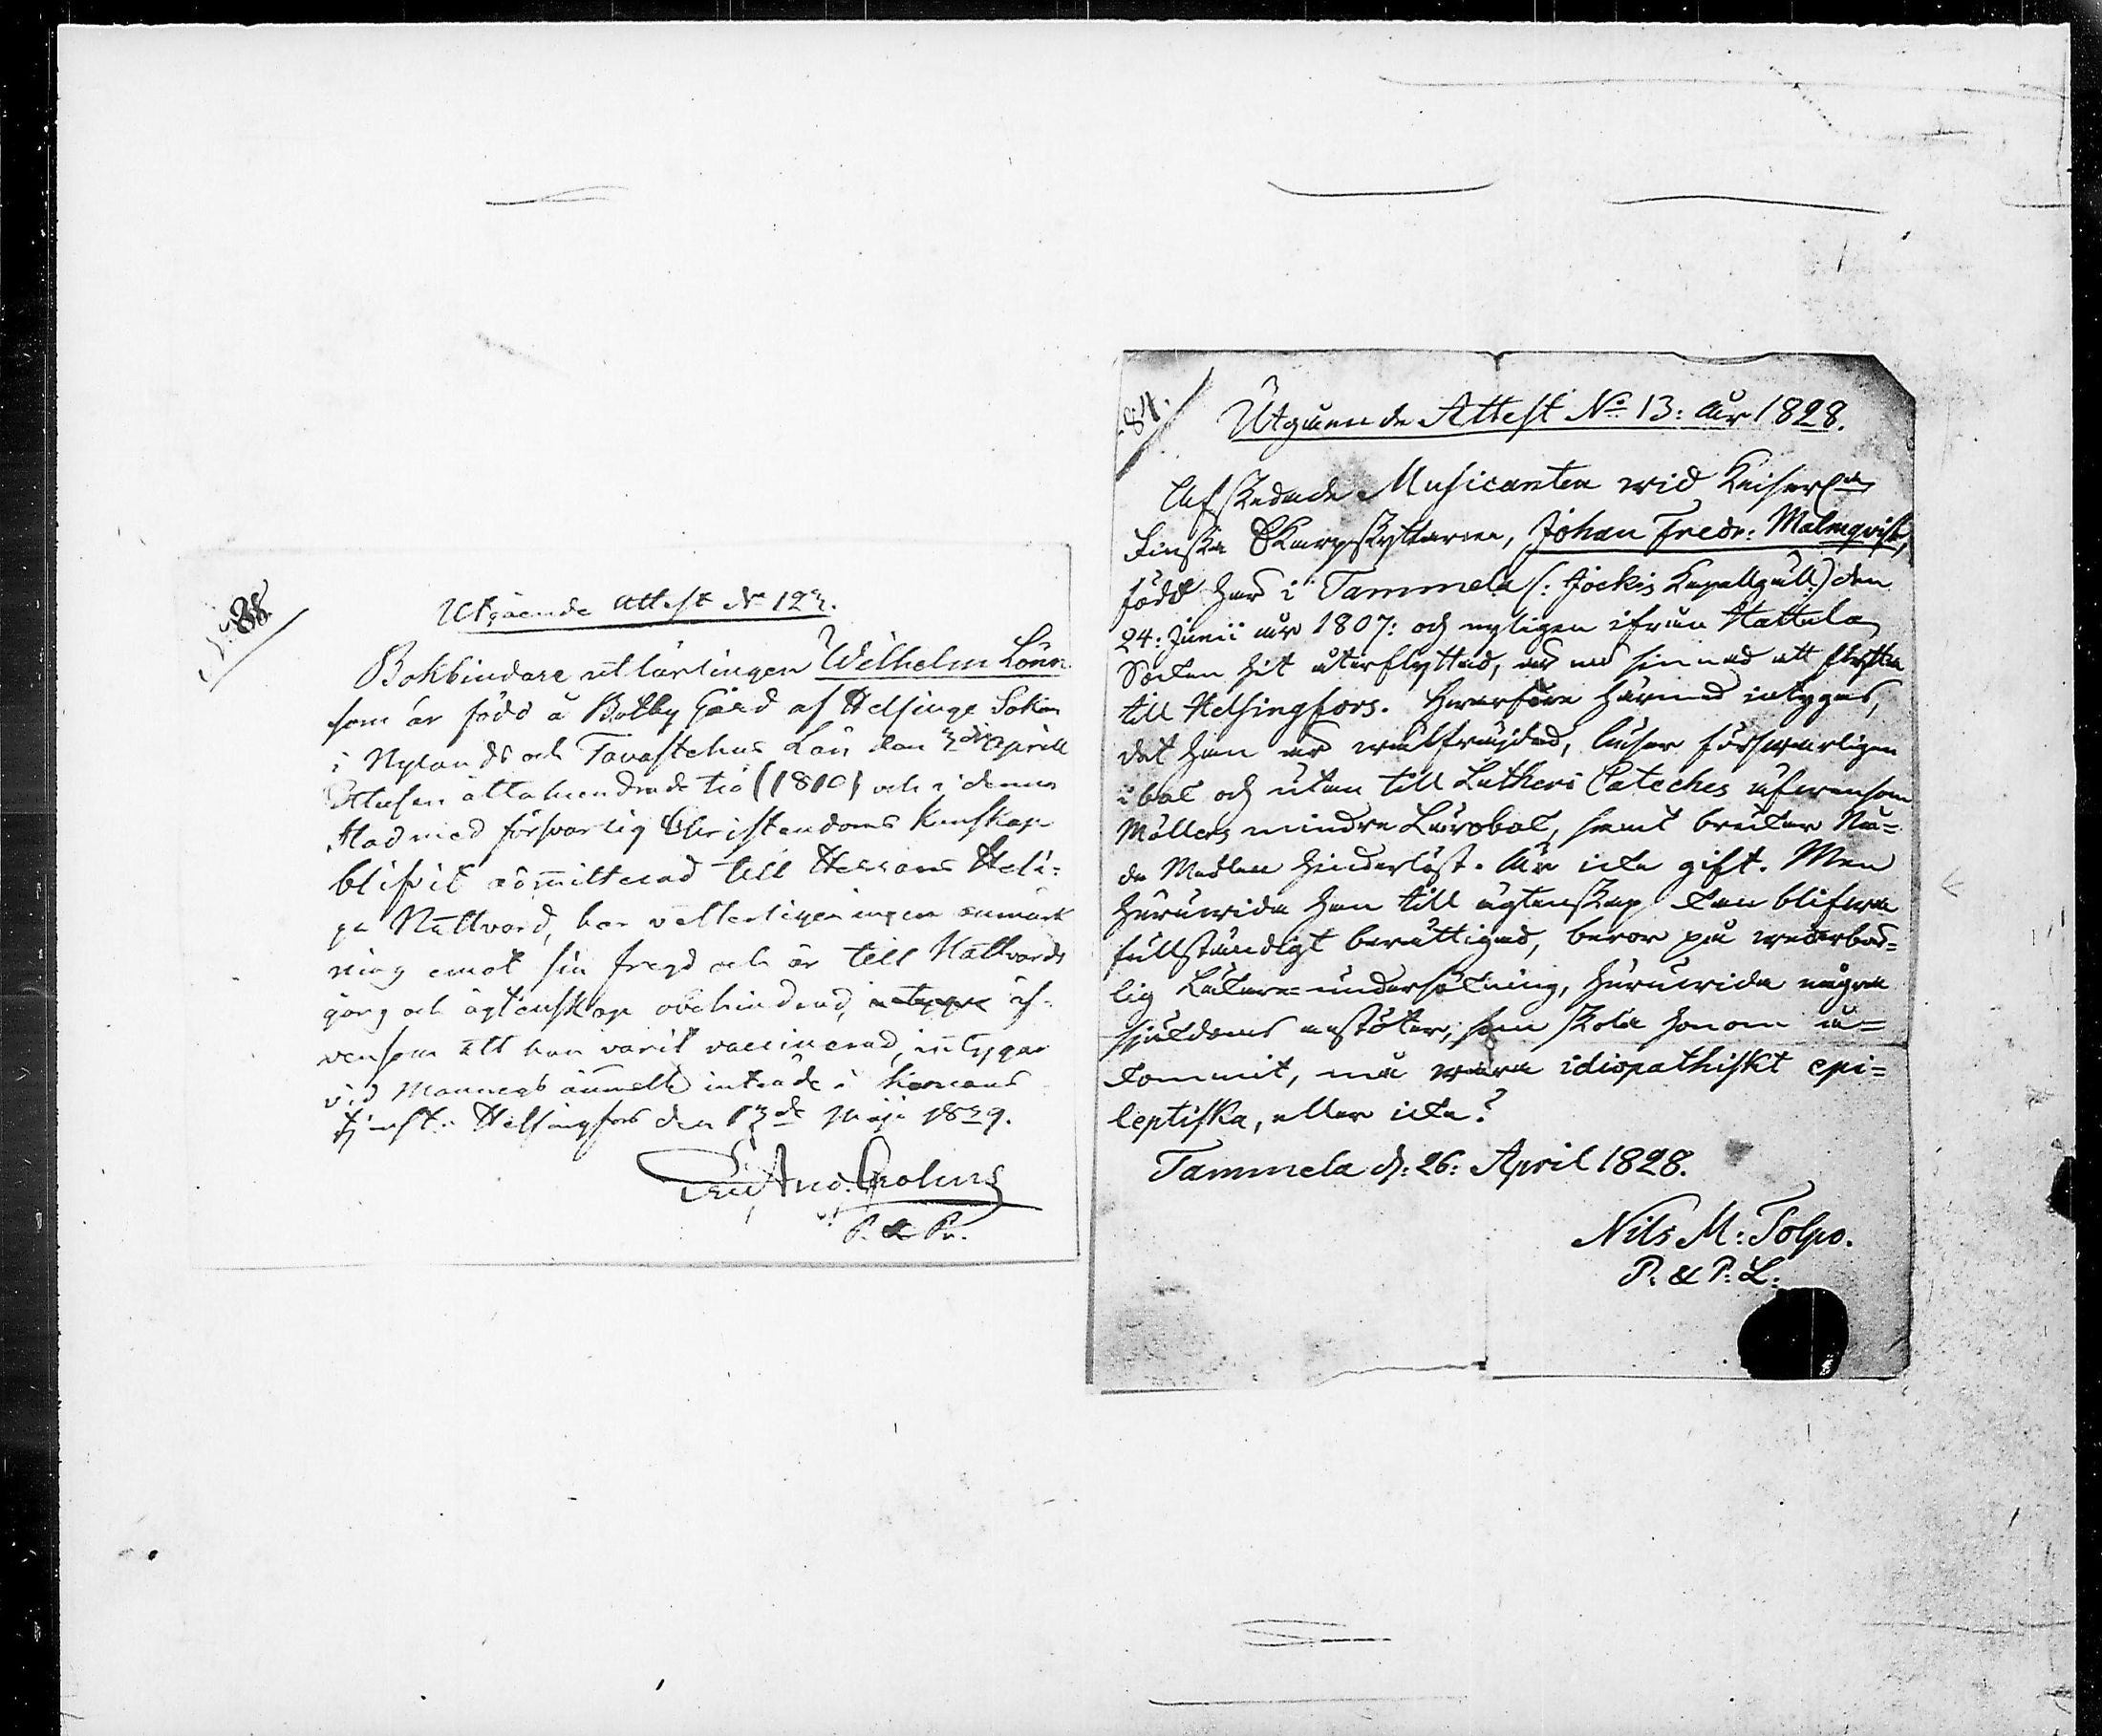 Utgående Attest No 123.
Bokbindare utlärlingen Wilhelm Lönn
som är född å Botby Gård af Helsinge Sokn
i Nylands och Tavastehus Län den 3die april
Ettusen åttahundrade tio (1810) och i denna
Stad med försvarlig Christendoms Kunskap
blifvit admitterad till Herrans Heli-
ga Nattvard, har vetterligen ingen anmärk
ning emot sin fregd och är till Nattvards
gång och ägtenskap obehindrad, äf-
vensom att han varit vaccinerad, intygar
vid Mannens anmälte inträde i Kronans
tjenst. Helsingfors den 13de Maji 1829.
P. & Pr.
84.
Utgående Attest No 13: år 1828.
Afskedade Musicanten wid Keiserl.
Finska Skarpskyttarne, Johan Fredr: Malmqvist,
född här i Tammela (: Jockis Kapellgäll:) den
24: Junii år 1807: och nyligen ifrån Hattula
Socken hit återflyttad, är nu sinnad att flytta
till Helsingfors. Hwarföre härmed intygas,
det han är wälfräjdad, läser förswarligen
i bok och utan till Lutheri Cateches äfwensom
Möllers mindre Lärobok, samt brukar Nå-
de Medlen hinderlöst. Är icke gift. Men
huruwida han till ägtenskap kan blifwa
fullständigt berättigad, beror på wederbör-
lig Läkare-undersökning, huruwida några
sjukdoms anstöter, som skola honom å-
kommit, må wara idiopathiskt epi-
leptiska, eller icke?
Tammela d: 26: April 1828.
Nils M: Tolpo.
P. & P: L: